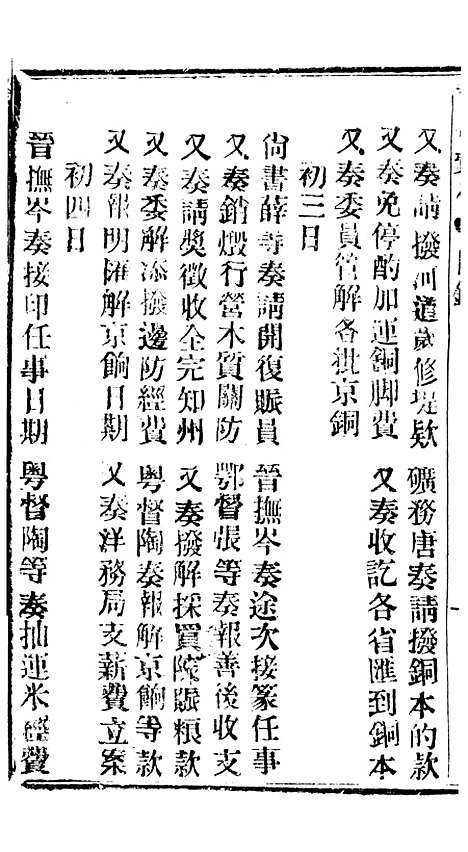 又奏請撥河道歲修堤欵　礦務唐奏請撥銅本的款
又奏免停酌加運銅脚費　又奏收訖各省匯到銅本
又奏委員管解各批京銅
初三日
尙書薛等奏請開復賑員　晉撫岑奏途次接篆任事
又奏銷燬行營木質關防　鄂督張等奏報善後收支
又奏請獎徵收全完知州　又奏撥解採買陝賑粮款
又奏委解添撥邊防經費　粤督陶奏報解京餉等款
又奏報明匯解京餉日期　又奏洋務局支薪費立案
初四日
晉撫岑奏接印任事日期　粤督陶等奏抽運米經費